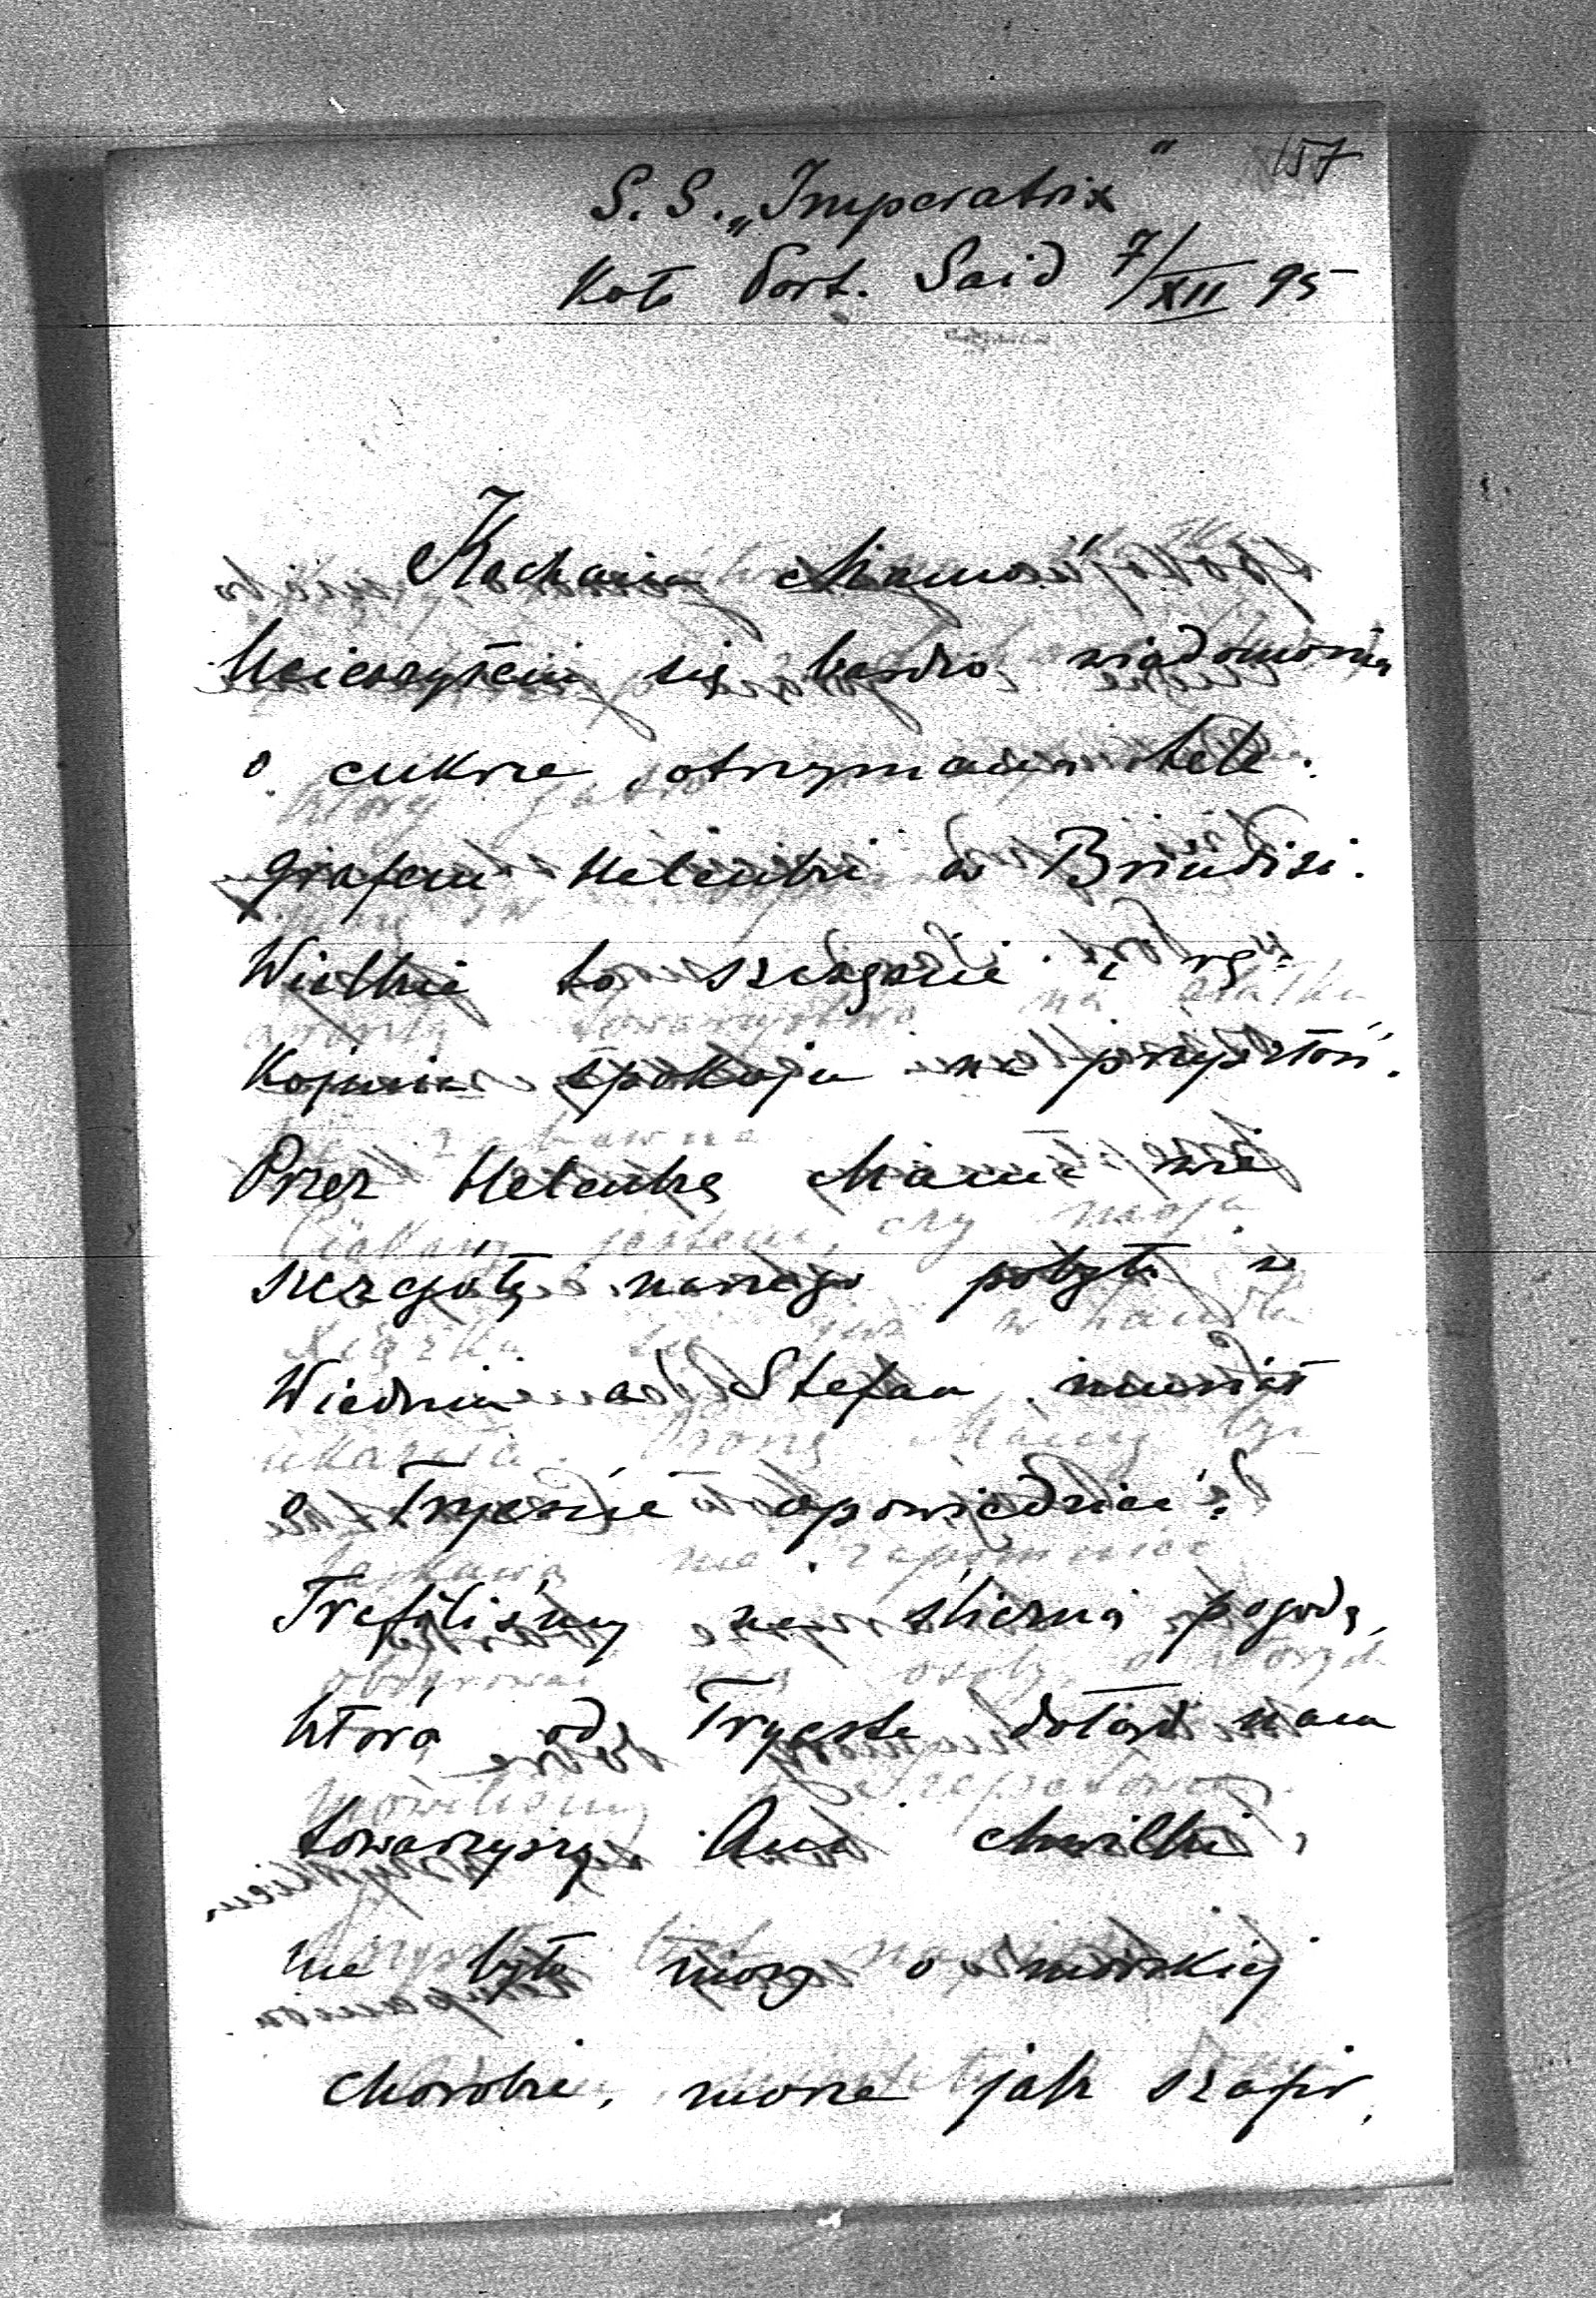 157
S. S. „Imperatrix"
Koło Port. Said 7/XII 95
Kochana Mamusiu
Ucieszyłem się bardzo wiadomością
o cukrze otrzymaną tele-
grafem Helenki w Brindisi.
Wielkie to szczęście i rę-
kojmia spokoju na przyszłość.
Przez Helenkę Mama wie
szczegóły naszego pobytu w
Wiedniu a Stefan musiał
o Tryeście opowiedzieć.
Trafiliśmy na śliczną pogodę,
która od Tryestu dotąd nam
towarzyszy. Ani chwilki
nie było mowy o morskiej
chorobie, morze jak szafir,